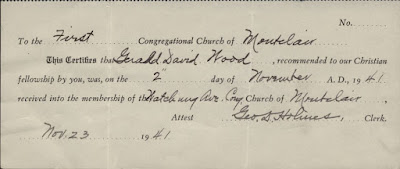 No.
To the First Congregational Church of Montclair
This Certifies that Gerald David Wood, recommended to our Christian
fellowship by you, was, on the 2" day of November A. D., 1941
received into the membership of the Watchung Ave. Cong. Church of Montclair.
Attest Geo. S. Holmes, Clerk.
Nov. 23 1941